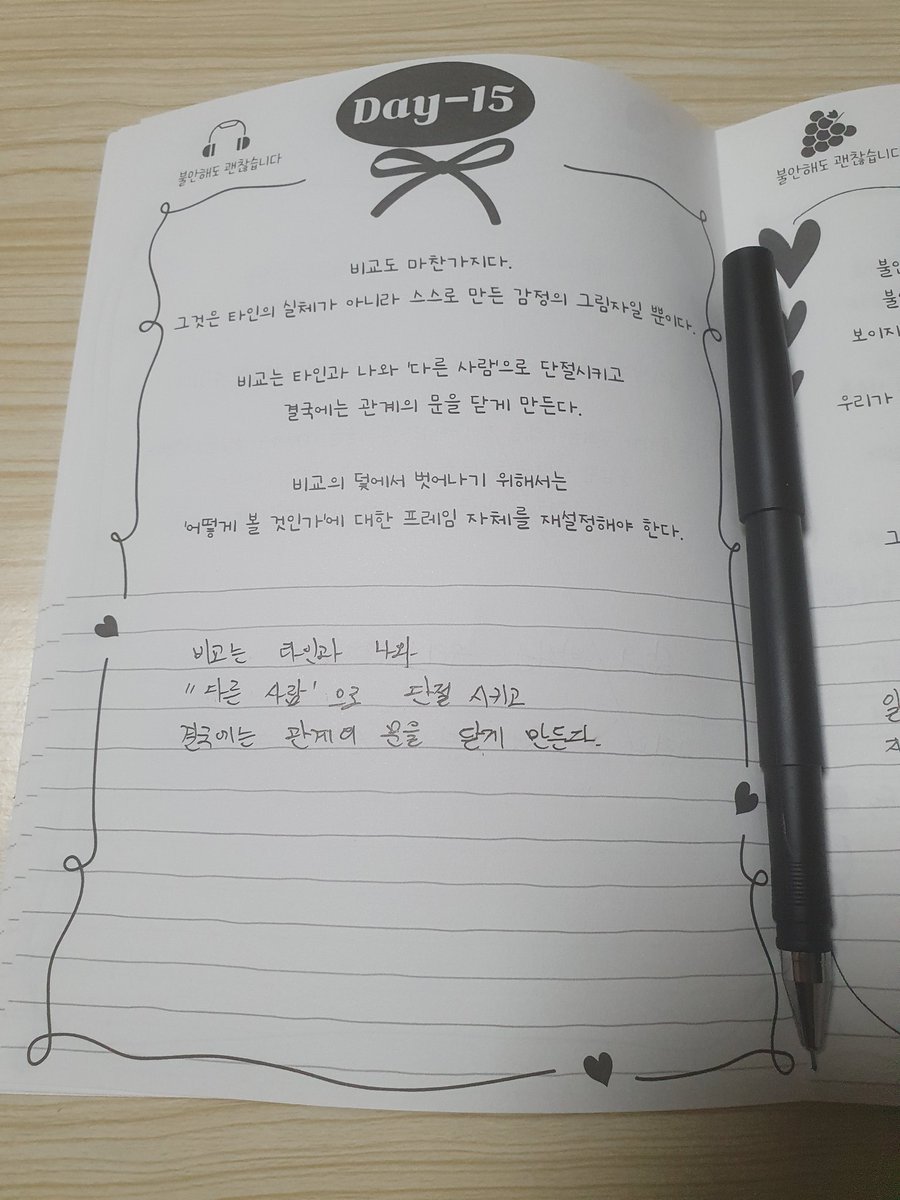 Day-15
불안해도 괜찮습니다
비교도 마찬가지다.
그것은 타인의 실체가 아니라 스스로 만든 감정의 그림자일 뿐이다.
비교는 타인과 나와 '다른 사람'으로 단절시키고
결국에는 관계의 문을 닫게 만든다.
비교의 덫에서 벗어나기 위해서는
'어떻게 볼 것인가'에 대한 프레임 자체를 재설정해야 한다.
비교는 타인과 나와
"다른 사람' 으로 단절 시키고
결국에는 관계의 문을 닫게 만든다.
불안해도 괜찮습니다
보이지
우리가